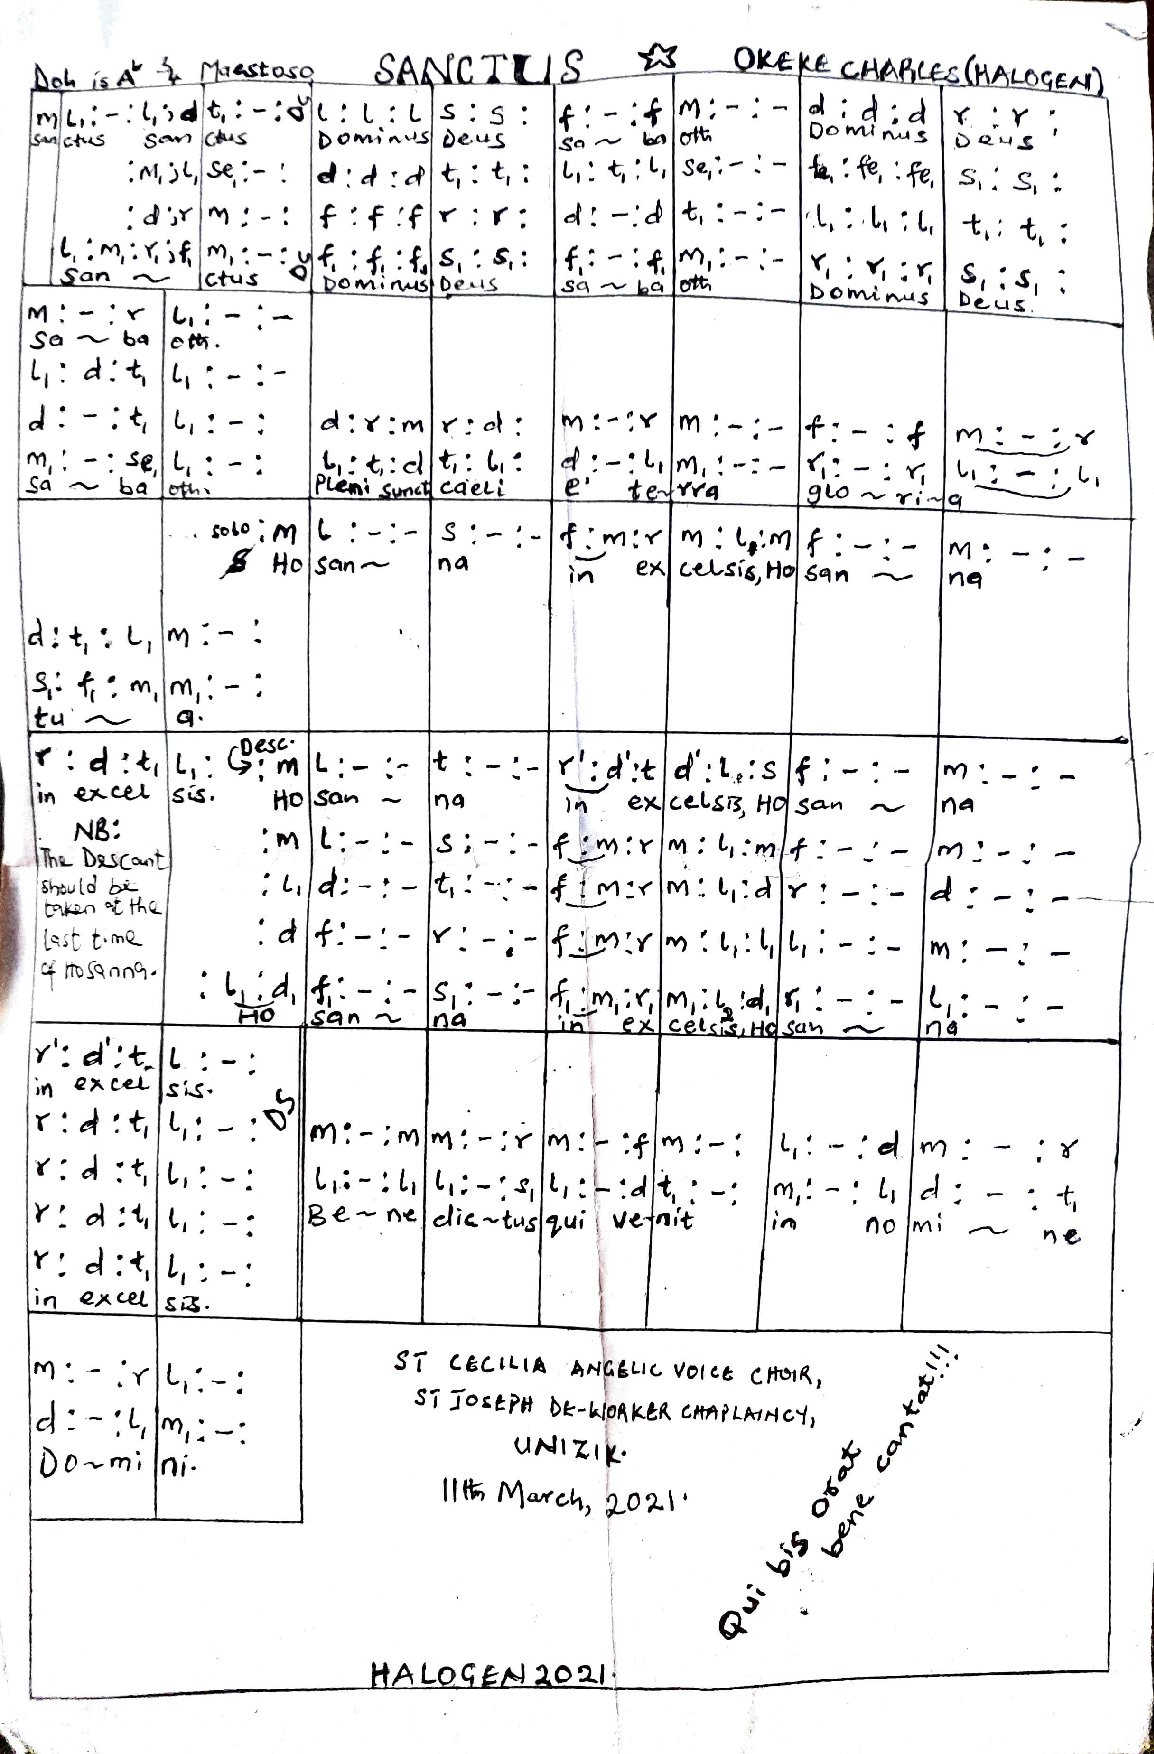 Doh is A♭ 3/4 Maestoso SANCTUS ☆ OKEKE CHARLES (HALOGEN)
m | l₁ : - : l₁ ; d | t₁ : - : | l : l : l | s : s : | f : - : f | m : - : - | d : d : d | r : r :
san ctus san ctus Dominus Deus sa ~ ba oth Dominus Deus
: m₁ ; l₁ | se₁ : - : | d : d : d | t₁ : t₁ : | l₁ : t₁ : l₁ | se₁ : - : - | fe₁ : fe₁ : fe₁ | s₁ : s₁ :
: d ; r | m : - : | f : f : f | r : r : | d : - : d | t₁ : - : - | l₁ : l₁ : l₁ | t₁ : t₁ :
l₁ : m₁ : r₁ ; f₁ | m₁ : - : | f₁ : f₁ : f₁ | s₁ : s₁ : | f₁ : - : f₁ | m₁ : - : - | r₁ : r₁ : r₁ | s₁ : s₁ :
san ~ ctus Dominus Deus sa ~ ba oth Dominus Deus.
m : - : r | l₁ : - : -
sa ~ ba oth.
l₁ : d : t₁ | l₁ : - : -
d : - : t₁ | l₁ : - : | d : r : m | r : d : | m : - : r | m : - : - | f : - : f | m : - : r
m₁ : - : se₁ | l₁ : - : | l₁ : t₁ : d | t₁ : l₁ : | d : - : l₁ | m₁ : - : - | r₁ : - : r₁ | l₁ : - : l₁
sa ~ ba oth. Pleni sunct caeli e' te~rra glo ~ ri~a
solo : m | l : - : - | s : - : - | f : m : r | m : l₁ : m | f : - : - | m : - : -
Ho san~ na in ex celsis, Ho san ~ na
d : t₁ : l₁ | m : - :
s₁ : f₁ : m₁ | m₁ : - :
tu ~ a.
Desc.
r : d : t₁ | l₁ : : m | l : - : - | t : - : - | r' : d' : t | d' : l : s | f : - : - | m : - : -
in excel sis. Ho san ~ na in ex celsis, Ho san ~ na
NB: : m | l : - : - | s : - : - | f : m : r | m : l₁ : m | f : - : - | m : - : -
The Descant
should be : l₁ | d : - : - | t₁ : - : - | f : m : r | m : l₁ : d | r : - : - | d : - : -
taken at the
last time : d | f : - : - | r : - : - | f : m : r | m : l₁ : l₁ | l₁ : - : - | m : - : -
of Hosanna.
: l₁ : d₁ | f₁ : - : - | s₁ : - : - | f₁ : m₁ : r₁ | m₁ : l₂ : d₁ | r₁ : - : - | l₁ : - : -
Ho san ~ na in ex celsis, Ho san ~ na
r' : d' : t | l : - :
in excel sis.
r : d : t₁ | l₁ : - : DS | m : - : m | m : - : r | m : - : f | m : - : | l₁ : - : d | m : - : r
r : d : t₁ | l₁ : - : | l₁ : - : l₁ | l₁ : - : s₁ | l₁ : - : d | t₁ : - : | m₁ : - : l₁ | d : - : t₁
Be ~ ne dic~tus qui ve~nit in no mi ~ ne
r : d : t₁ | l₁ : - :
r : d : t₁ | l₁ : - :
in excel sis.
m : - : r | l₁ : - :
d : - : l₁ | m₁ : - :
Do~mi ni.
ST CECILIA ANGELIC VOICE CHOIR,
ST JOSEPH DE-WORKER CHAPLAINCY,
UNIZIK.
11th March, 2021.
Qui bis Orat
bene cantat!!!
HALOGEN 2021.